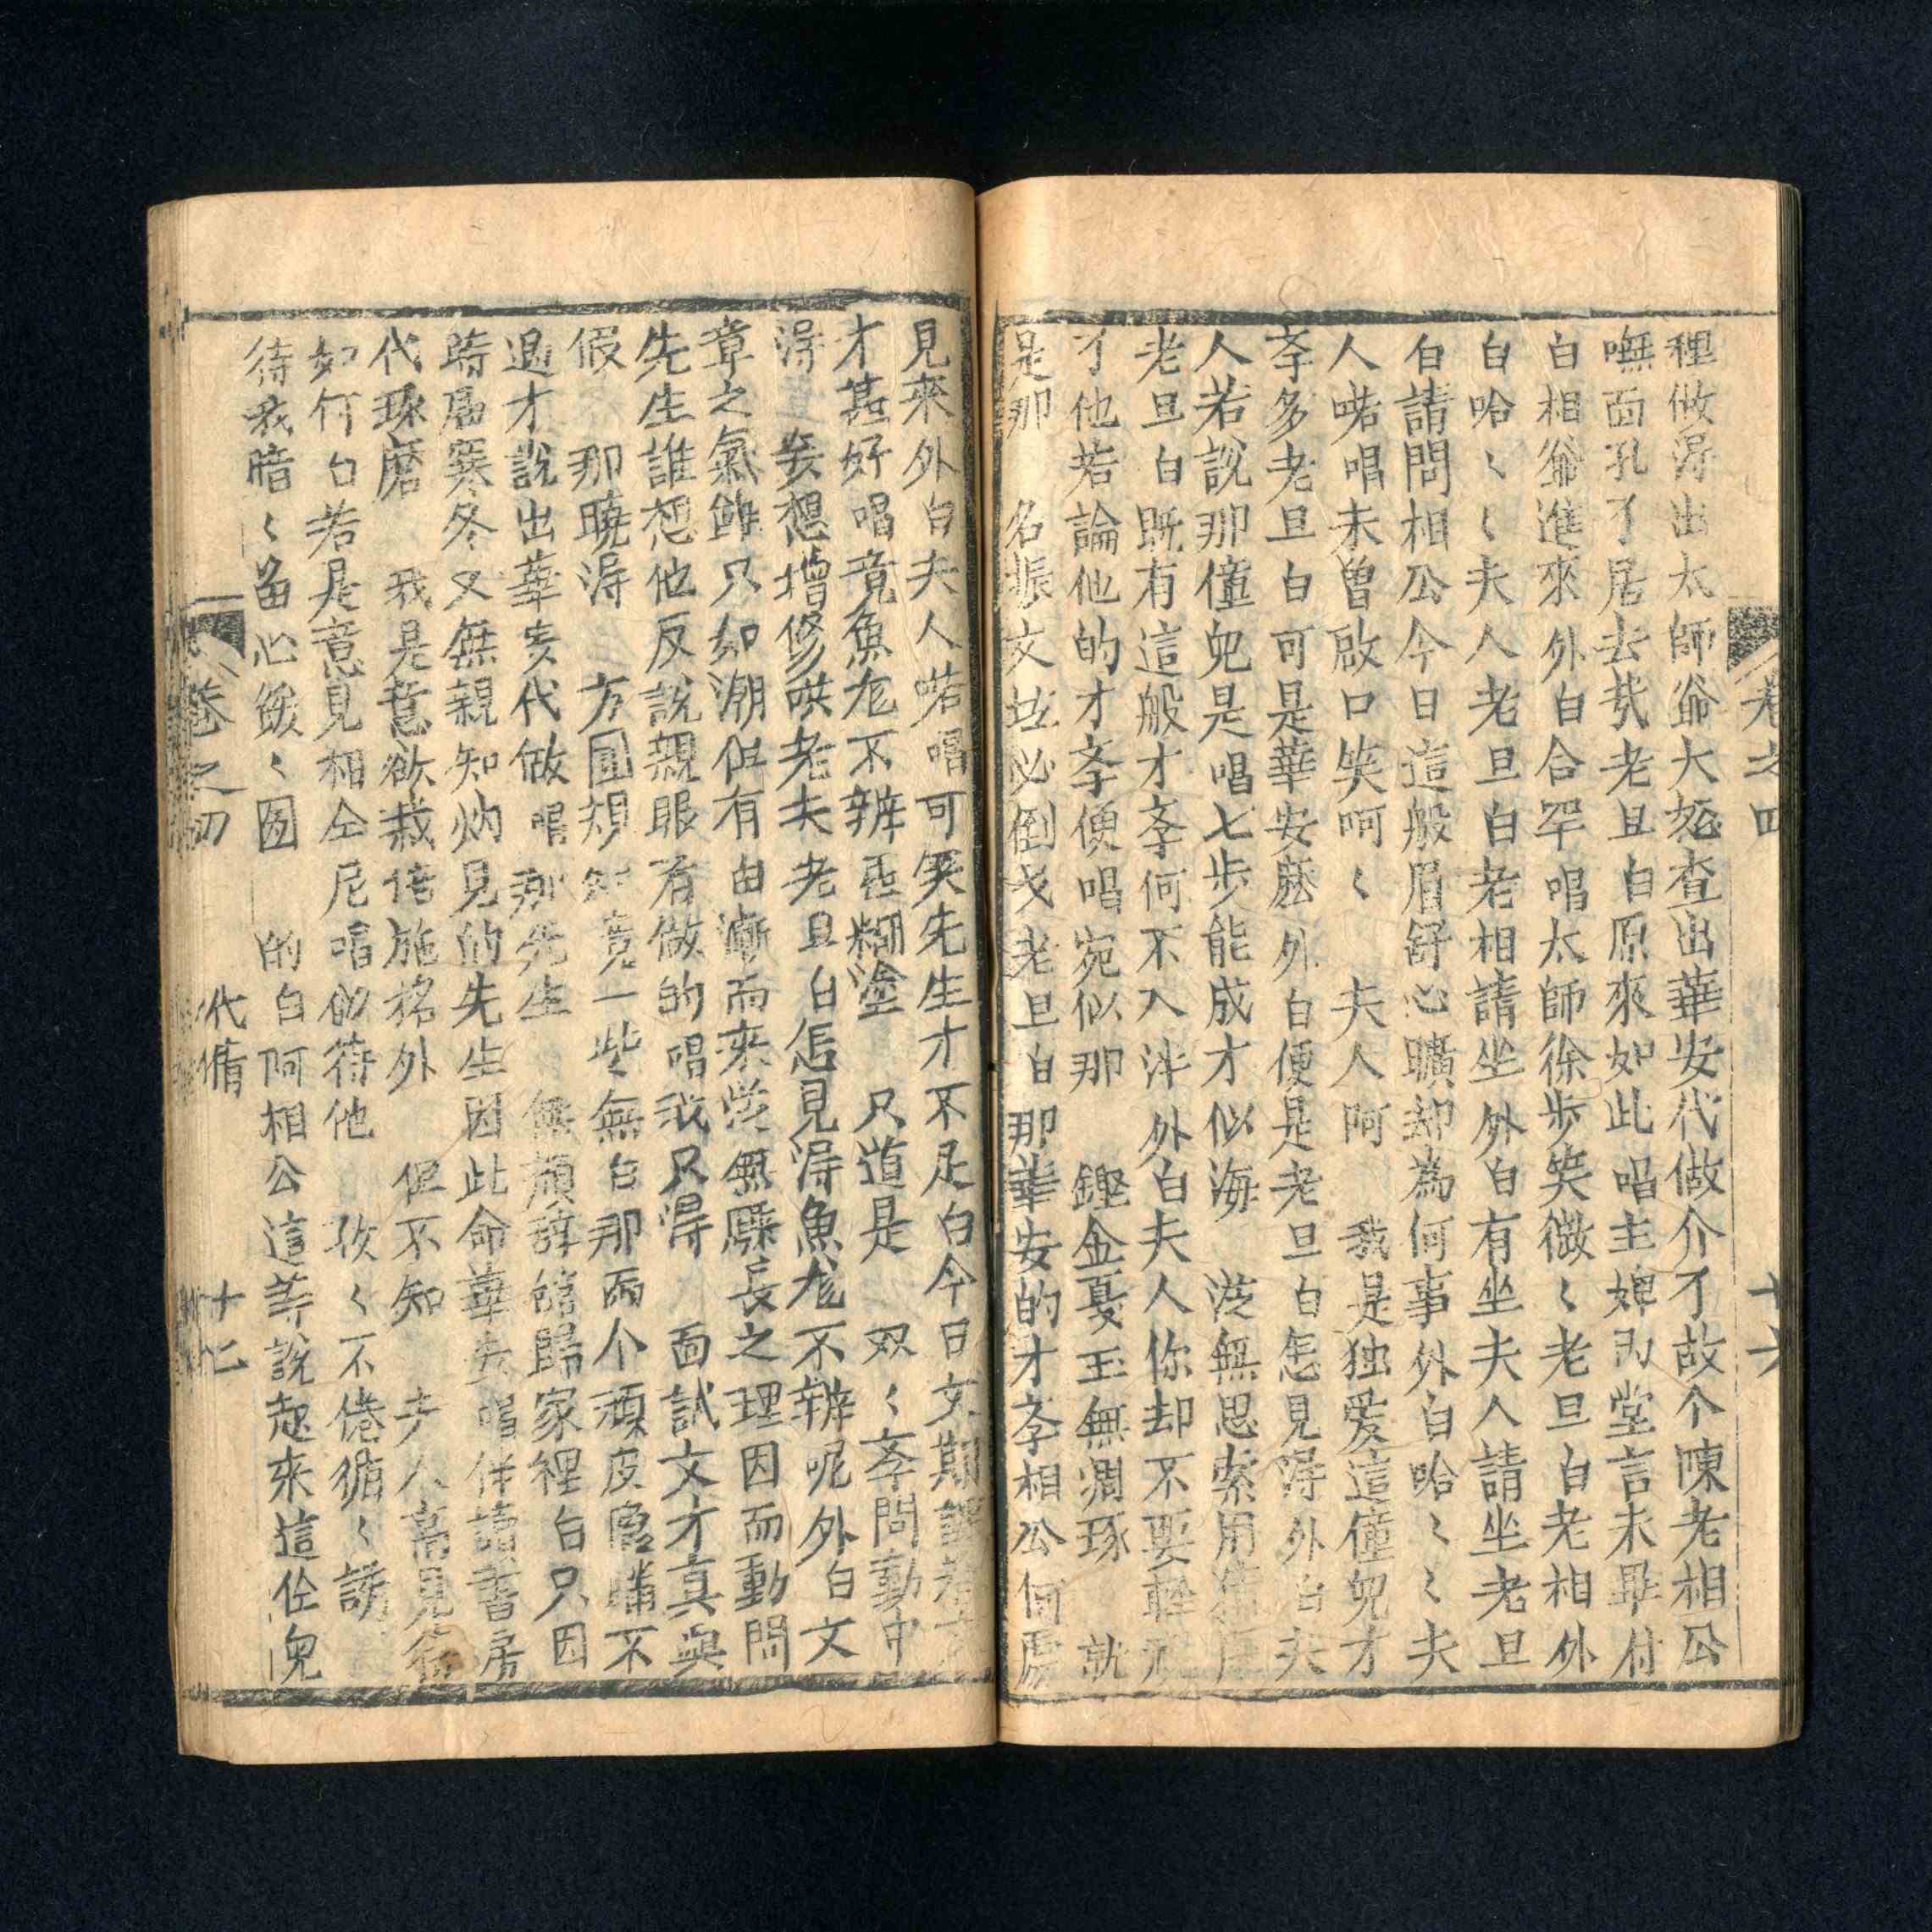 卷之四
十六
種做淂出太師爺大怒查出華安代做介了故个陳老相公
嘸面孔了居去哉老旦白原來如此唱主婢內堂言未畢付
白相爺進來外白合罕唱太師徐步笑微〻老旦白老相外
白哈〻〻夫人老旦白老相請坐外白有坐夫人請坐老旦
白請問相公今日這般眉舒心曠却為何事外白哈〻〻夫
人喏唱未曾啟口笑呵〻夫人呵我是独爱這僮兒才
斈多老旦白可是華安庅外白便是老旦白怎見淂外白夫
人若說那僮兒是唱七步能成才似海並無思索用
老旦白既有這般才斈何不入泮外白夫人你却不要輕
了他若論他的才斈便唱宛似那鏗金戞玉無凋琢就
是那名振文坛必倒戈老旦白那華安的才斈相公何處
見來外白夫人喏唱可笑先生才不足白今日文期課
才甚好唱竟魚尨不辨亞糊塗只道是双〻斈問動中
淂妄想增修哄老夫老旦白怎見淂魚尨不辨呢外白文
章之氣雖只如潮但有由漸而來並無驟長之理因而動問
先生誰想他反說親眼看做的唱我只淂面試文才真與
假那曉淂方圓規矩竟一些無白那兩个頑皮隱瞞不
過才說出華安代做唱那先生無顏辞舘歸家裡白只因
時屆寒冬又無親知灼見的先生因此命華安唱伴讀書房
代琢磨我是意欲栽培施拯外但不知夫人高見
如何白若是意見相仝尼唱必待他孜〻不倦循〻誘
待我暗〻畱心緩〻圖的白阿相公這等說起來這侄兒
卷之四
代脩
十七